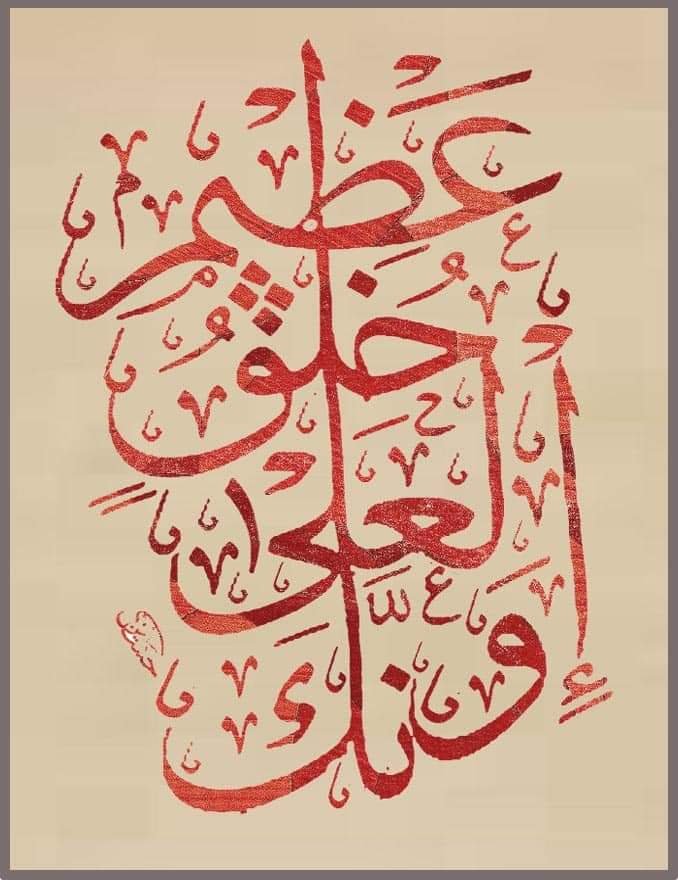 وإنك
لعلى
خلق
عظيم